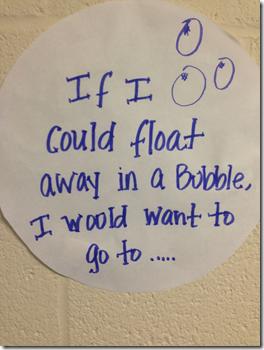 If I
Could float
away in a Bubble,
I would want to
go to .....